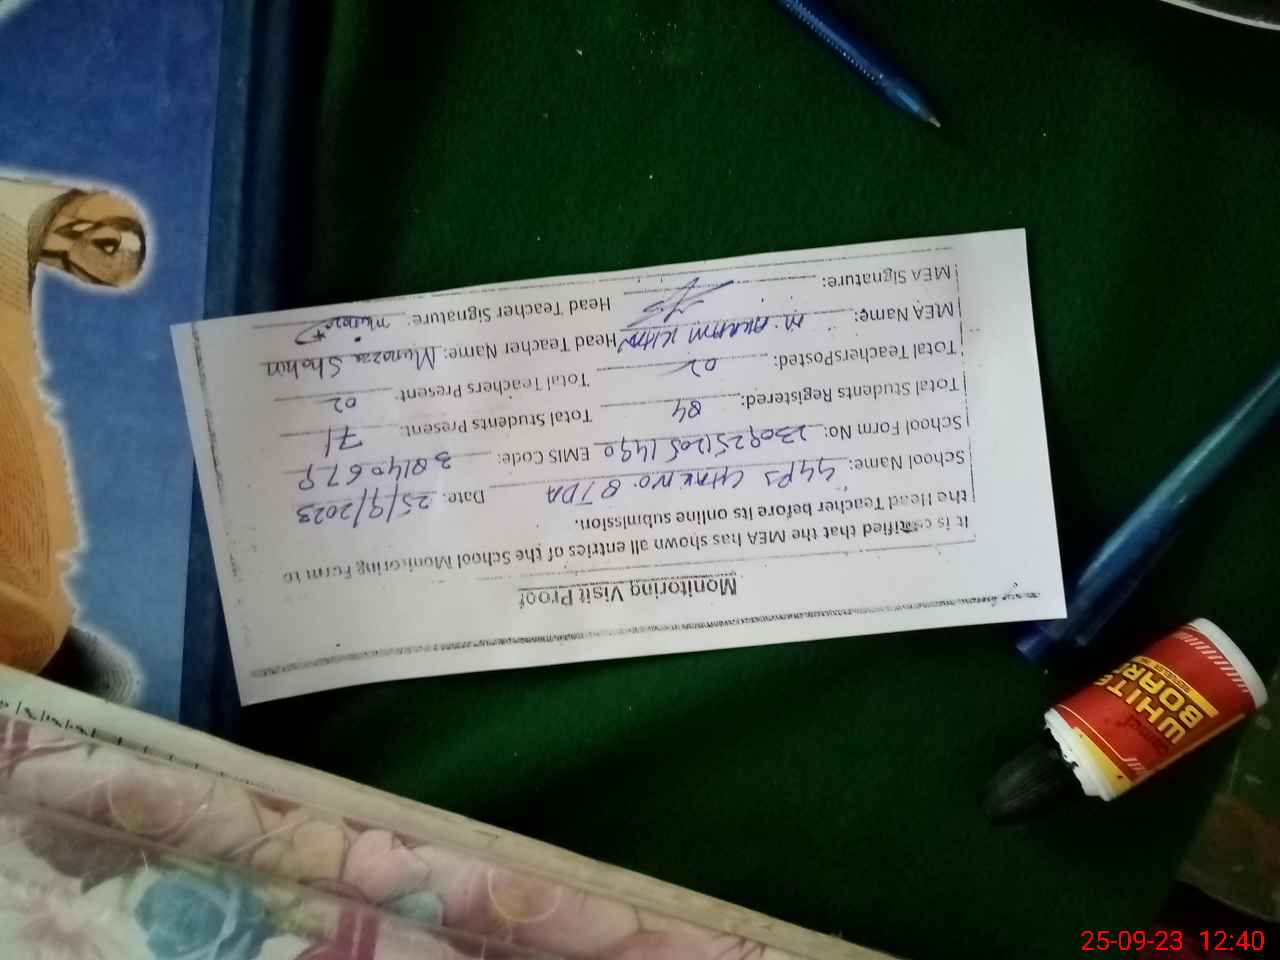 Monitoring Visit Proof
It is certified that the MEA has shown all entries of the School Monitoring Form to
the Head Teacher before its online submission.
School Name: GGPS CHAK NO. 87DA Date: 25/9/2023
School Form No: EMIS Code:
Total Students Registered: 84 Total Students Present: 71
Total TeachersPosted: 02 Total Teachers Present: 02
MEA Name: M. AKRAM KHAN Head Teacher Name: Munaza Shahin
MEA Signature: Head Teacher Signature: Munaza
WHITE
BOARD
25-09-23 12:40